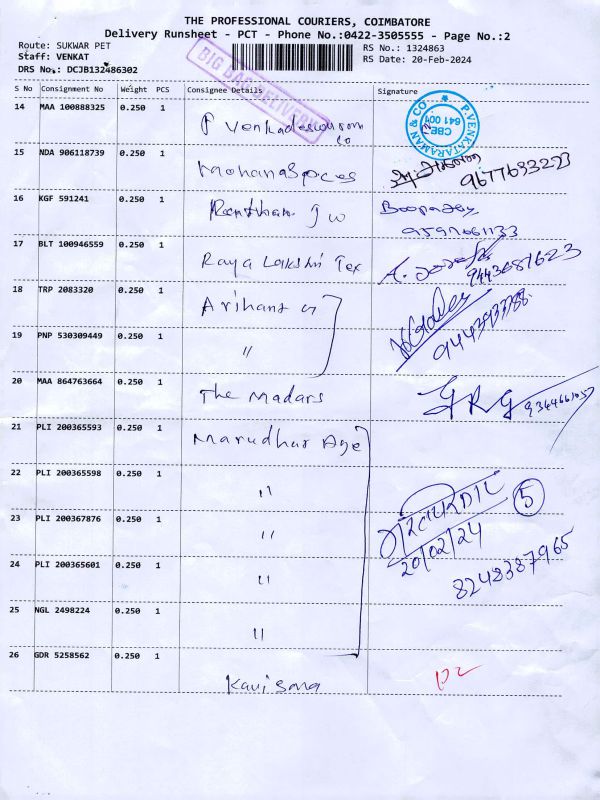 THE PROFESSIONAL COURIERS, COIMBATORE
Delivery Runsheet - PCT - Phone No.:0422-3505555 - Page No.:2
Route: SUKWAR PET
Staff: VENKAT
DRS No.: DCJB132486302
BIG BAG DELIVERY
RS No.: 1324863
RS Date: 20-Feb-2024
S No Consignment No Weight PCS Consignee Details Signature
14 MAA 100888325 0.250 1
P Venkadeswaram
Co
P. VENKATARAMAN & CO
CBE
641 001
15 NDA 906118739 0.250 1
Mohana Spices
9677693293
16 KGF 591241 0.250 1
17 BLT 100946559 0.250 1
Raya Lakshi Tex
9443687623
18 TRP 2083320 0.250 1
Arihant
19 PNP 530309449 0.250 1
"
20 MAA 864763664 0.250 1
The Madars
GRG
21 PLI 200365593 0.250 1
Marudhar Age
22 PLI 200365598 0.250 1
"
5
23 PLI 200367876 0.250 1
"
20/02/24
24 PLI 200365601 0.250 1
"
8248387965
25 NGL 2498224 0.250 1
"
26 GDR 5258562 0.250 1
Kavi Sana